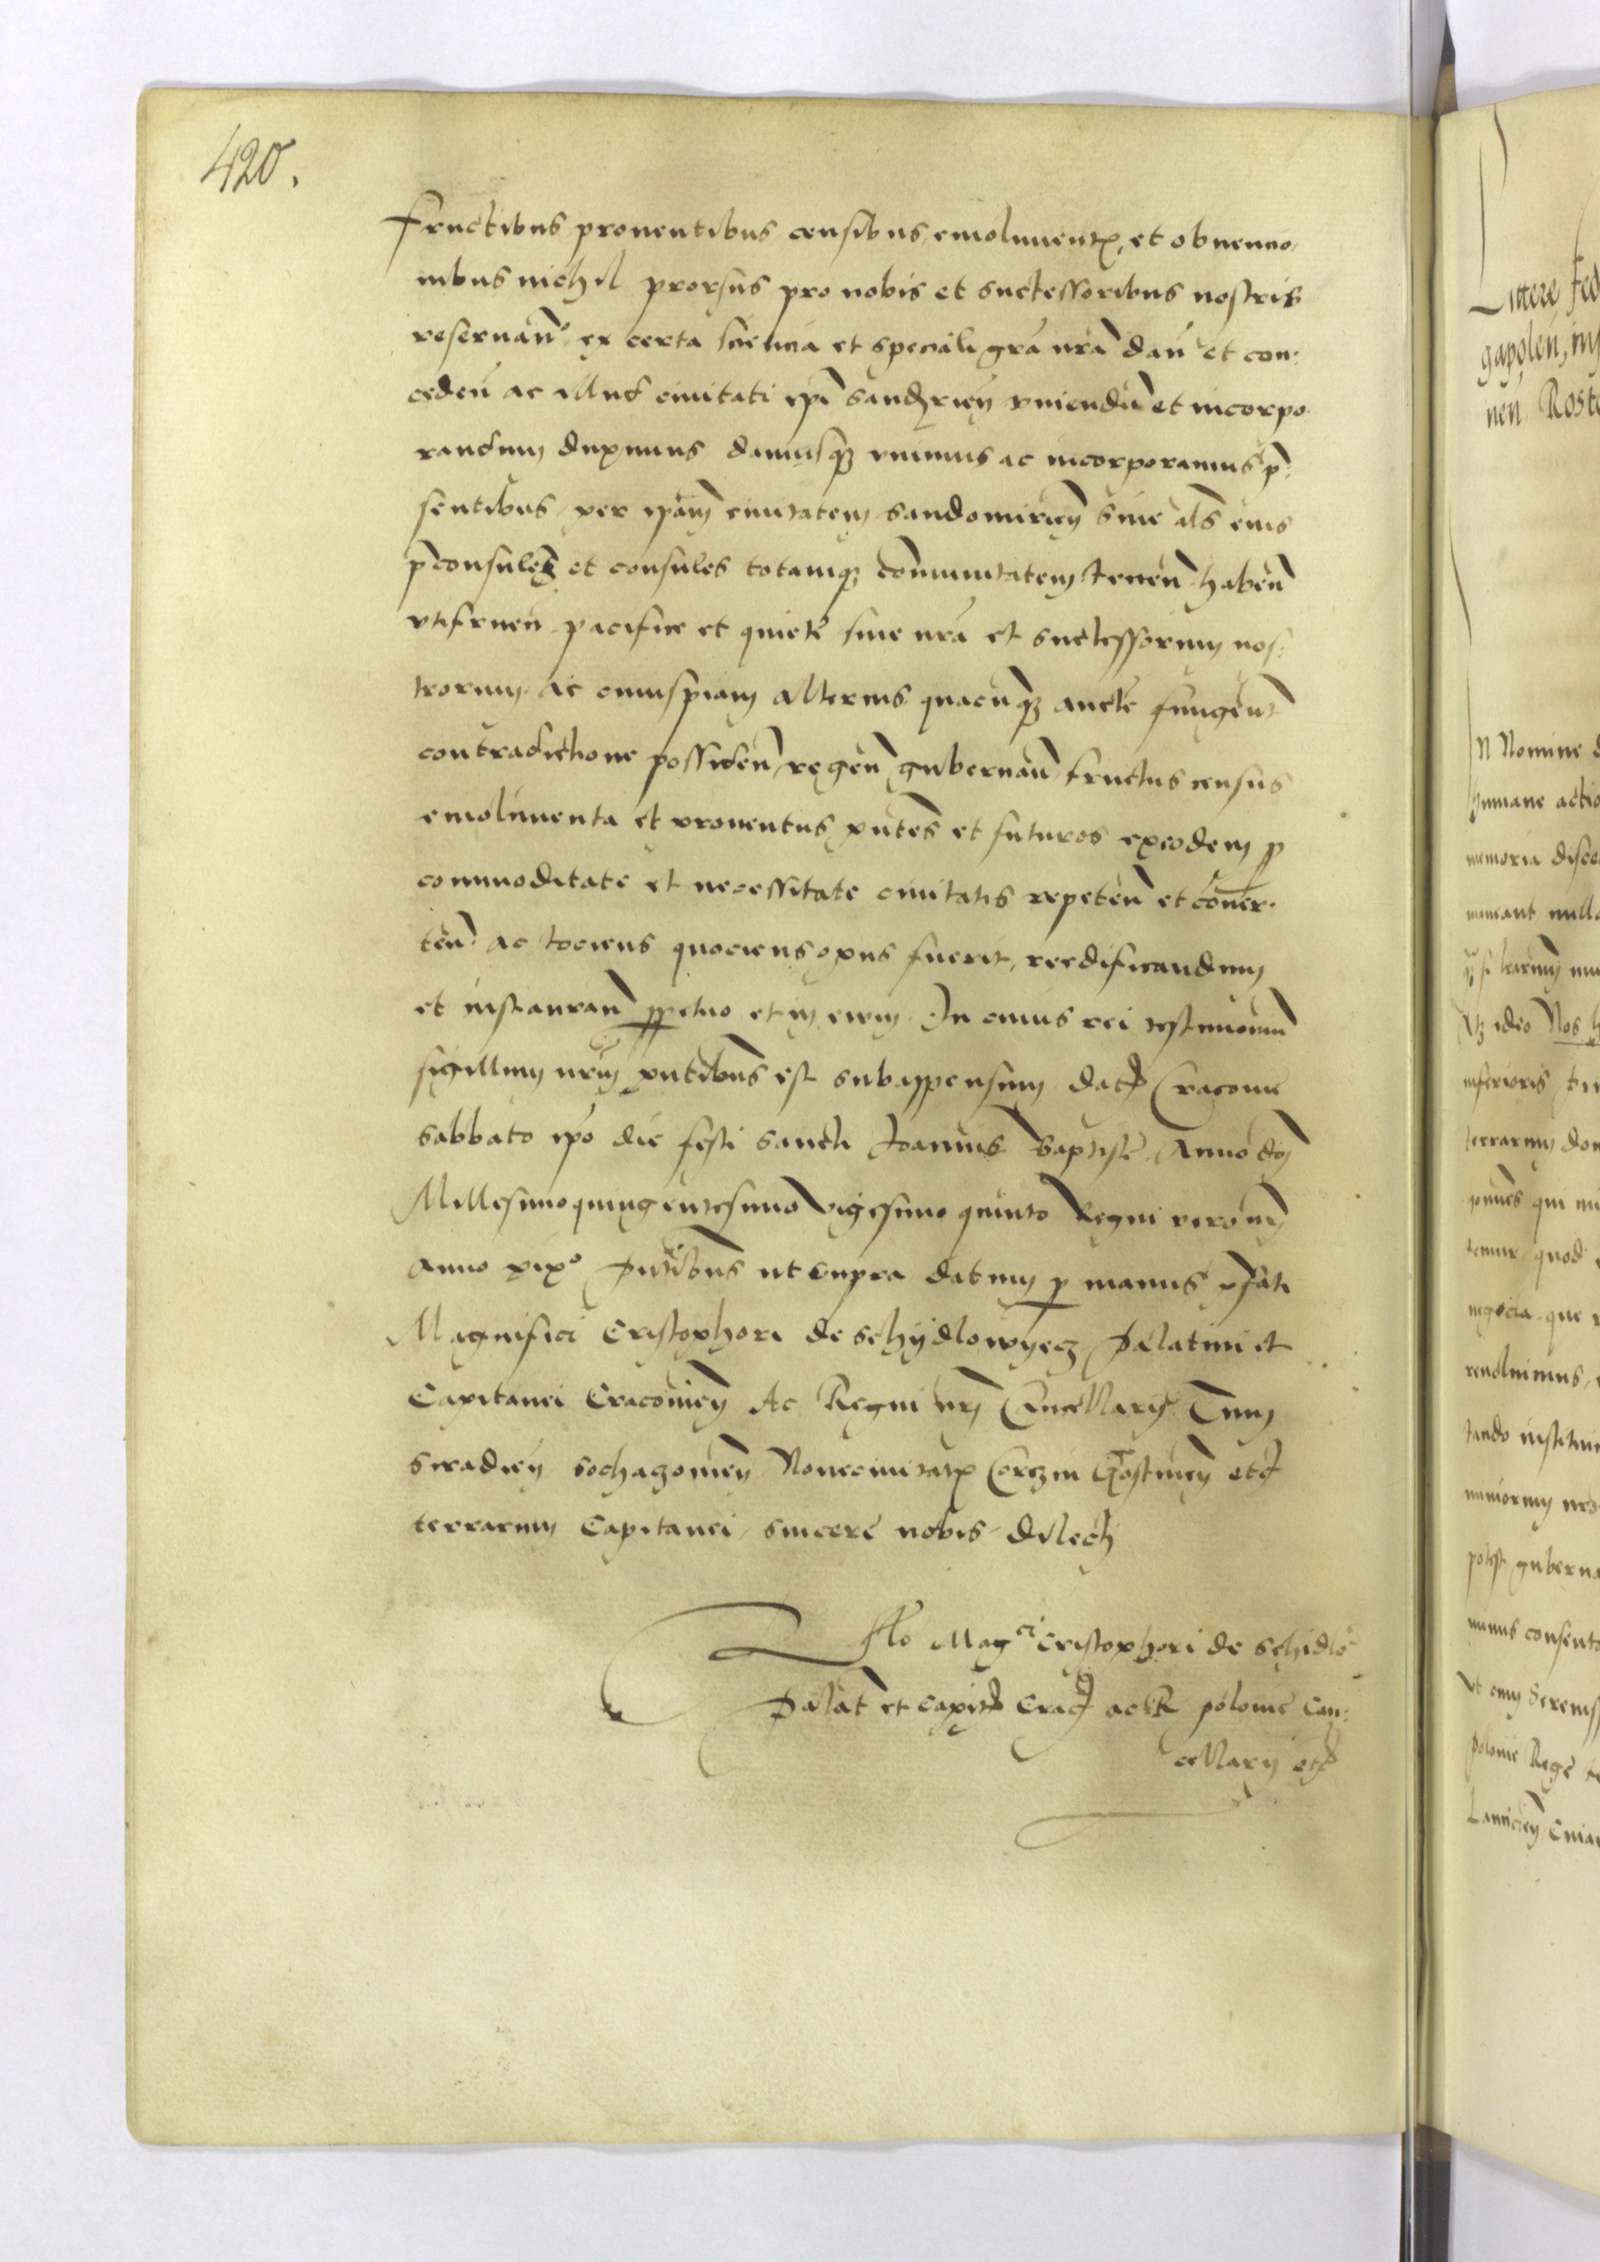 420.
fructibus proventibus censibus, emolument, et obvencio
nibus nichil prorsus pro nobis et successoribus nostris
reservan ex certa scientia et speciali gra nra dan et con:
ceden ac illud civitati ipi Sandrien uniendu et incorpo
randum duximus damusq unimus ac incorporamus p:
sentibus per ipam civitatem Sandomirien sive als eius
pconsules et consules totamq communitatem tenen haben
utifruen pacifice et quiete sine nra et successorum nos:
trorum ac cuiuspiam alterius quacunq aucte fungent
contradictione possiden, regen gubernan fructus census
emolumenta et proventus pntes et futuros exeodem p
commoditate et necessitate civitatis repeten et conver.
ten ac tociens quociens opus fuerit, reedificandum
et instauran ppetuo et in evum. In cuius rei testimonium
sigillum nrum pntibus est subappensum dat Cracovie
Sabbato ipo die festi sancti Joannis Baptiste Anno dni
Millesimo quingentesimo vigesimo quinto Regni vero nri
Anno xixº pntibus ut supra datum p manus pfati
Magnifici Cristophori de Schydlowyecz Palatini et
Capitanei Cracovien Ac Regni nri Cancellarij Tum
Siradien Sochaczovien Novecivitat Corczin Gostinen etc
terrarum Capitanei sincere nobis dilecti
Rlo Magci Cristophori de Schidlo
Palat et Capit Crac ac R Polonie Can:
cellarij etc
Littere fed
gapolen, in
nen Rost
In Nomine d
humane actio
memoria disce
maneant null
Nos
inferioris
terrarum dom
quod
negocia que
tando institu
potest guberna
consent
Polonie Rege